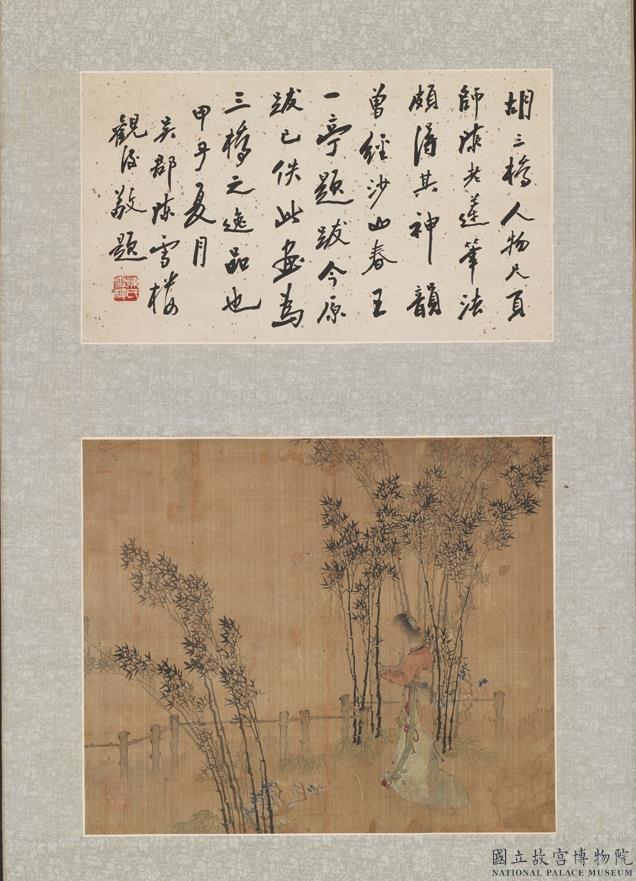 胡三橋人物尺頁
師陳老蓮筆法
頗得其神韻
曾經沙山春王
一亭題跋今原
跋已佚此畫為
三橋之逸品也
甲子夏月
吳郡陳雪樓
觀後敬題
國立故宮博物院
NATIONAL PALACE MUSEUM